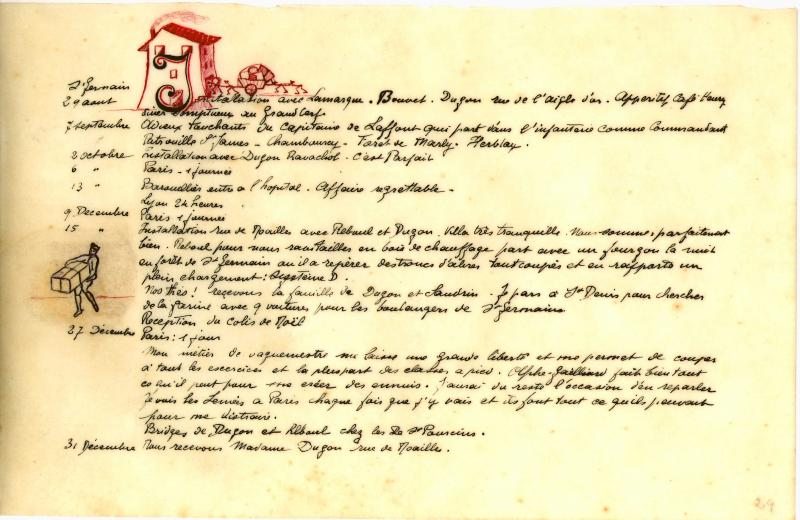 St Germain
29 aout Installation avec Lamarque. Bouvet. Dugon rue de l'aigle d'or. Apperitif Café Henry
diner somptueux au Grand Cerf
7 Septembre Adieux touchants du Capitaine de Laffont qui part dans l'infanterie comme Commandant
Patrouille St James - Chambourcy - Foret de Marly. Herblay.
2 octobre Installation avec Dugon Ravachol. C'est Parfait
6 " Paris - 1 journée
13 " entre a l'hopital. Affaire regrettable -
Lyon 24 heures.
9 Decembre Paris 1 journée
15 " Installation rue de Noailles avec Reboul et Dugon. Villa très tranquille. Nous sommes parfaitement
bien. Reboul pour nous ravitailler en bois de chauffage part avec un fourgon la nuit
en foret de St Germain ou il a repérer des troncs d'arbres tout coupés et en rapporte un
plein chargement: Système D.
Nos thés! recevons la famille de Dugon et Landrin. Je pars a St Denis pour chercher
de la farine avec 9 voitures pour les boulangers de St Germain
Reception du Colis de Noël
27 Décembre Paris: 1 jour
Mon métier de vaguemestre me laisse une grande liberté et me permet de couper
à tout les exercices et la pluspart des classes a pied. Alpha-Gaillard fait bien tout
ce qu'il peut pour me créer des ennuis. J'aurai du reste l'occasion d'en reparler
Je vois les a Paris chaque fois que j'y vais et ils font tout ce qu'ils peuvent
pour me distraire.
Bridges de Dugon et Reboul chez les de St
31 Décembre Nous recevons Madame Dugon rue de Noailles.
29